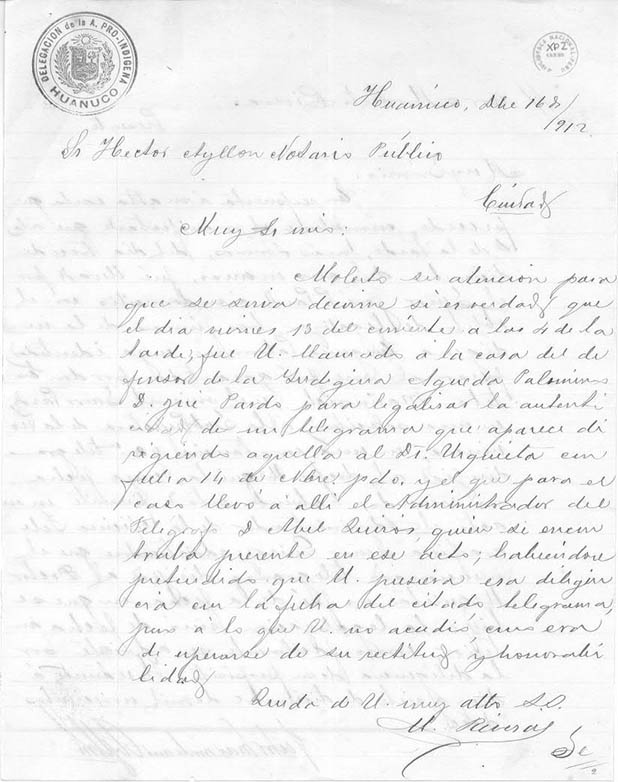 DELEGACION de la A. PRO-INDIGENA
HUANUCO
Huánuco, Dbe 16 d/
/912
Sr Hector Ayllon Notario Público
Ciudad
Muy Sr mio:
Molesto su atención para
que se sirva decirme si es verdad que
el dia viernes 13 del corriente a las 4 de la
tarde, fue U. llamado á la casa del de
fensor de la Indigena Agueda Palomino
D. Pardo para legalisar la autenti
cidad de un telegrama que aparece di
rigiendo aquella al Dr. Urquieta con
fecha 14 de Nbre. pdo. y el que para el
caso llevó á alli el Administrador del
Telégrafo D. Abel Quiros, quien se encon
traba presente en ese acto; habiendose
pretendido que U. pusiera esa diligen
cia con la fecha del citado telegrama,
pues á lo que U. no acudió, como era
de esperarse de su rectitud y honorabi
lidad
Queda de U. muy atto S.S.
M. Riveros